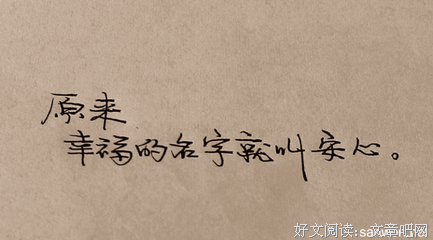 原来
幸福的名字就叫安心。
好文阅读：文章吧网